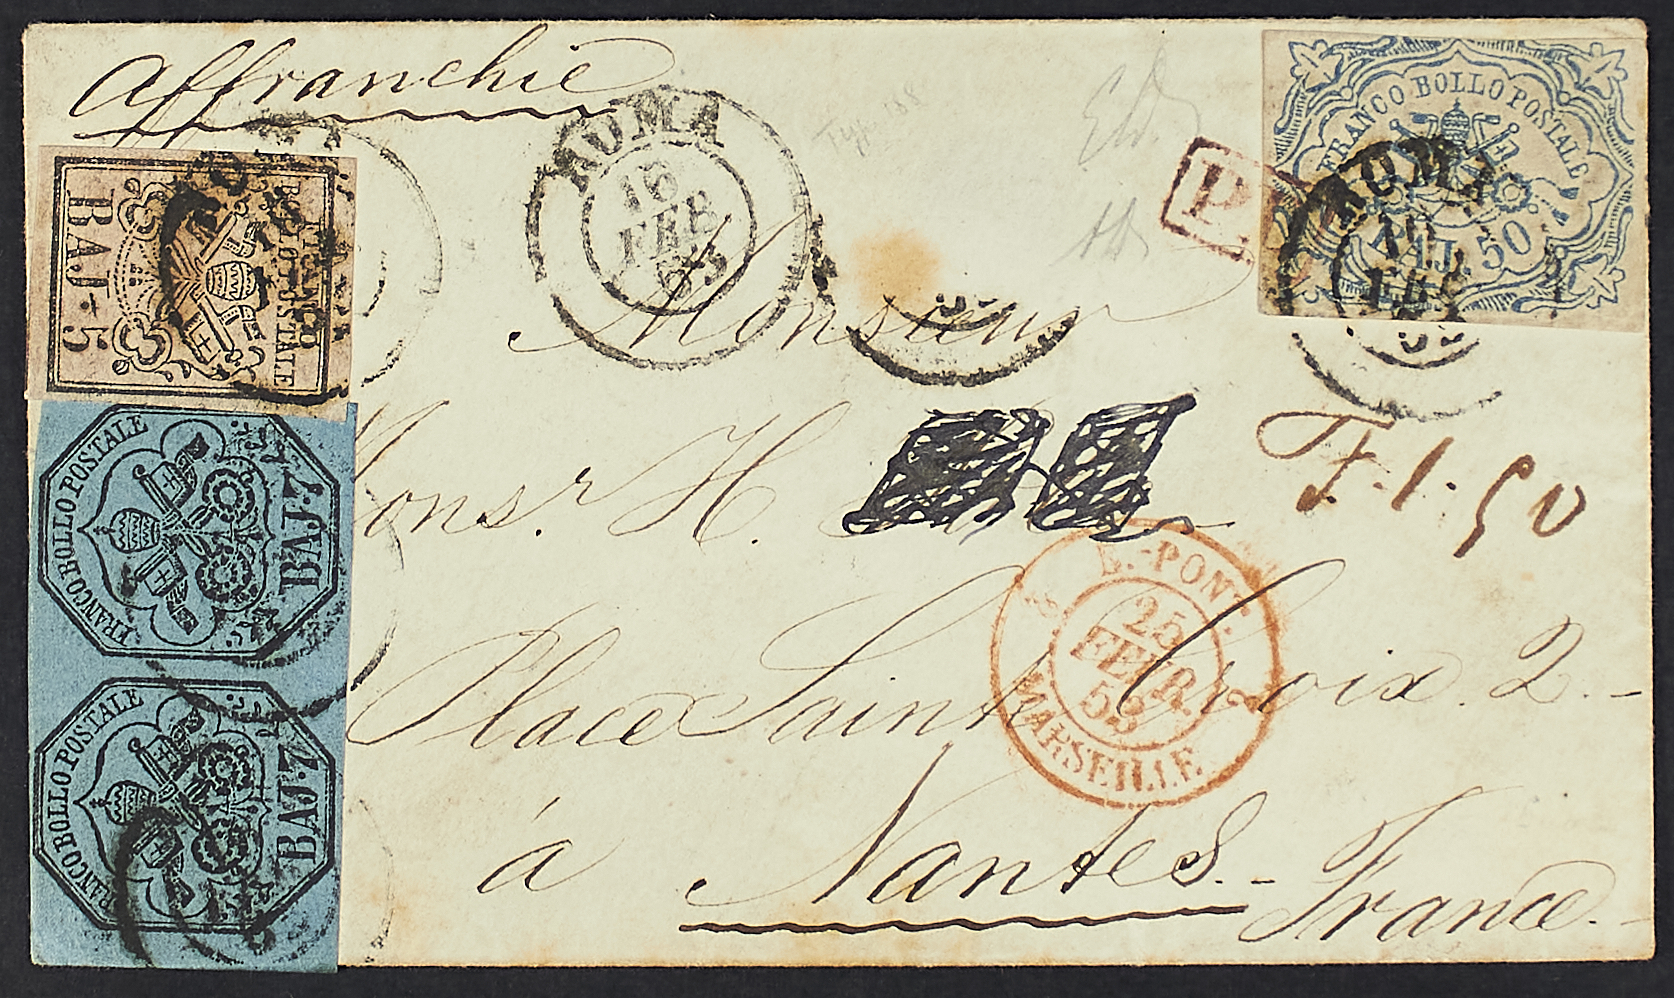 Affranchie
ROMA
18
FEB
53
P.
FRANCO BOLLO POSTALE
BAJ. 50
ROMA
FEB
FRANCO
BOLLO POSTALE
BAJ. 5
Monsieur
Mons.r H.
F. 1. 50
FRANCO BOLLO POSTALE
BAJ. 7
FRANCO BOLLO POSTALE
BAJ. 7
E.-PONT.
25
FEVR.
53
MARSEILLE
2
Place Sainte Croix. 2.-
à Nantes.-
France.-